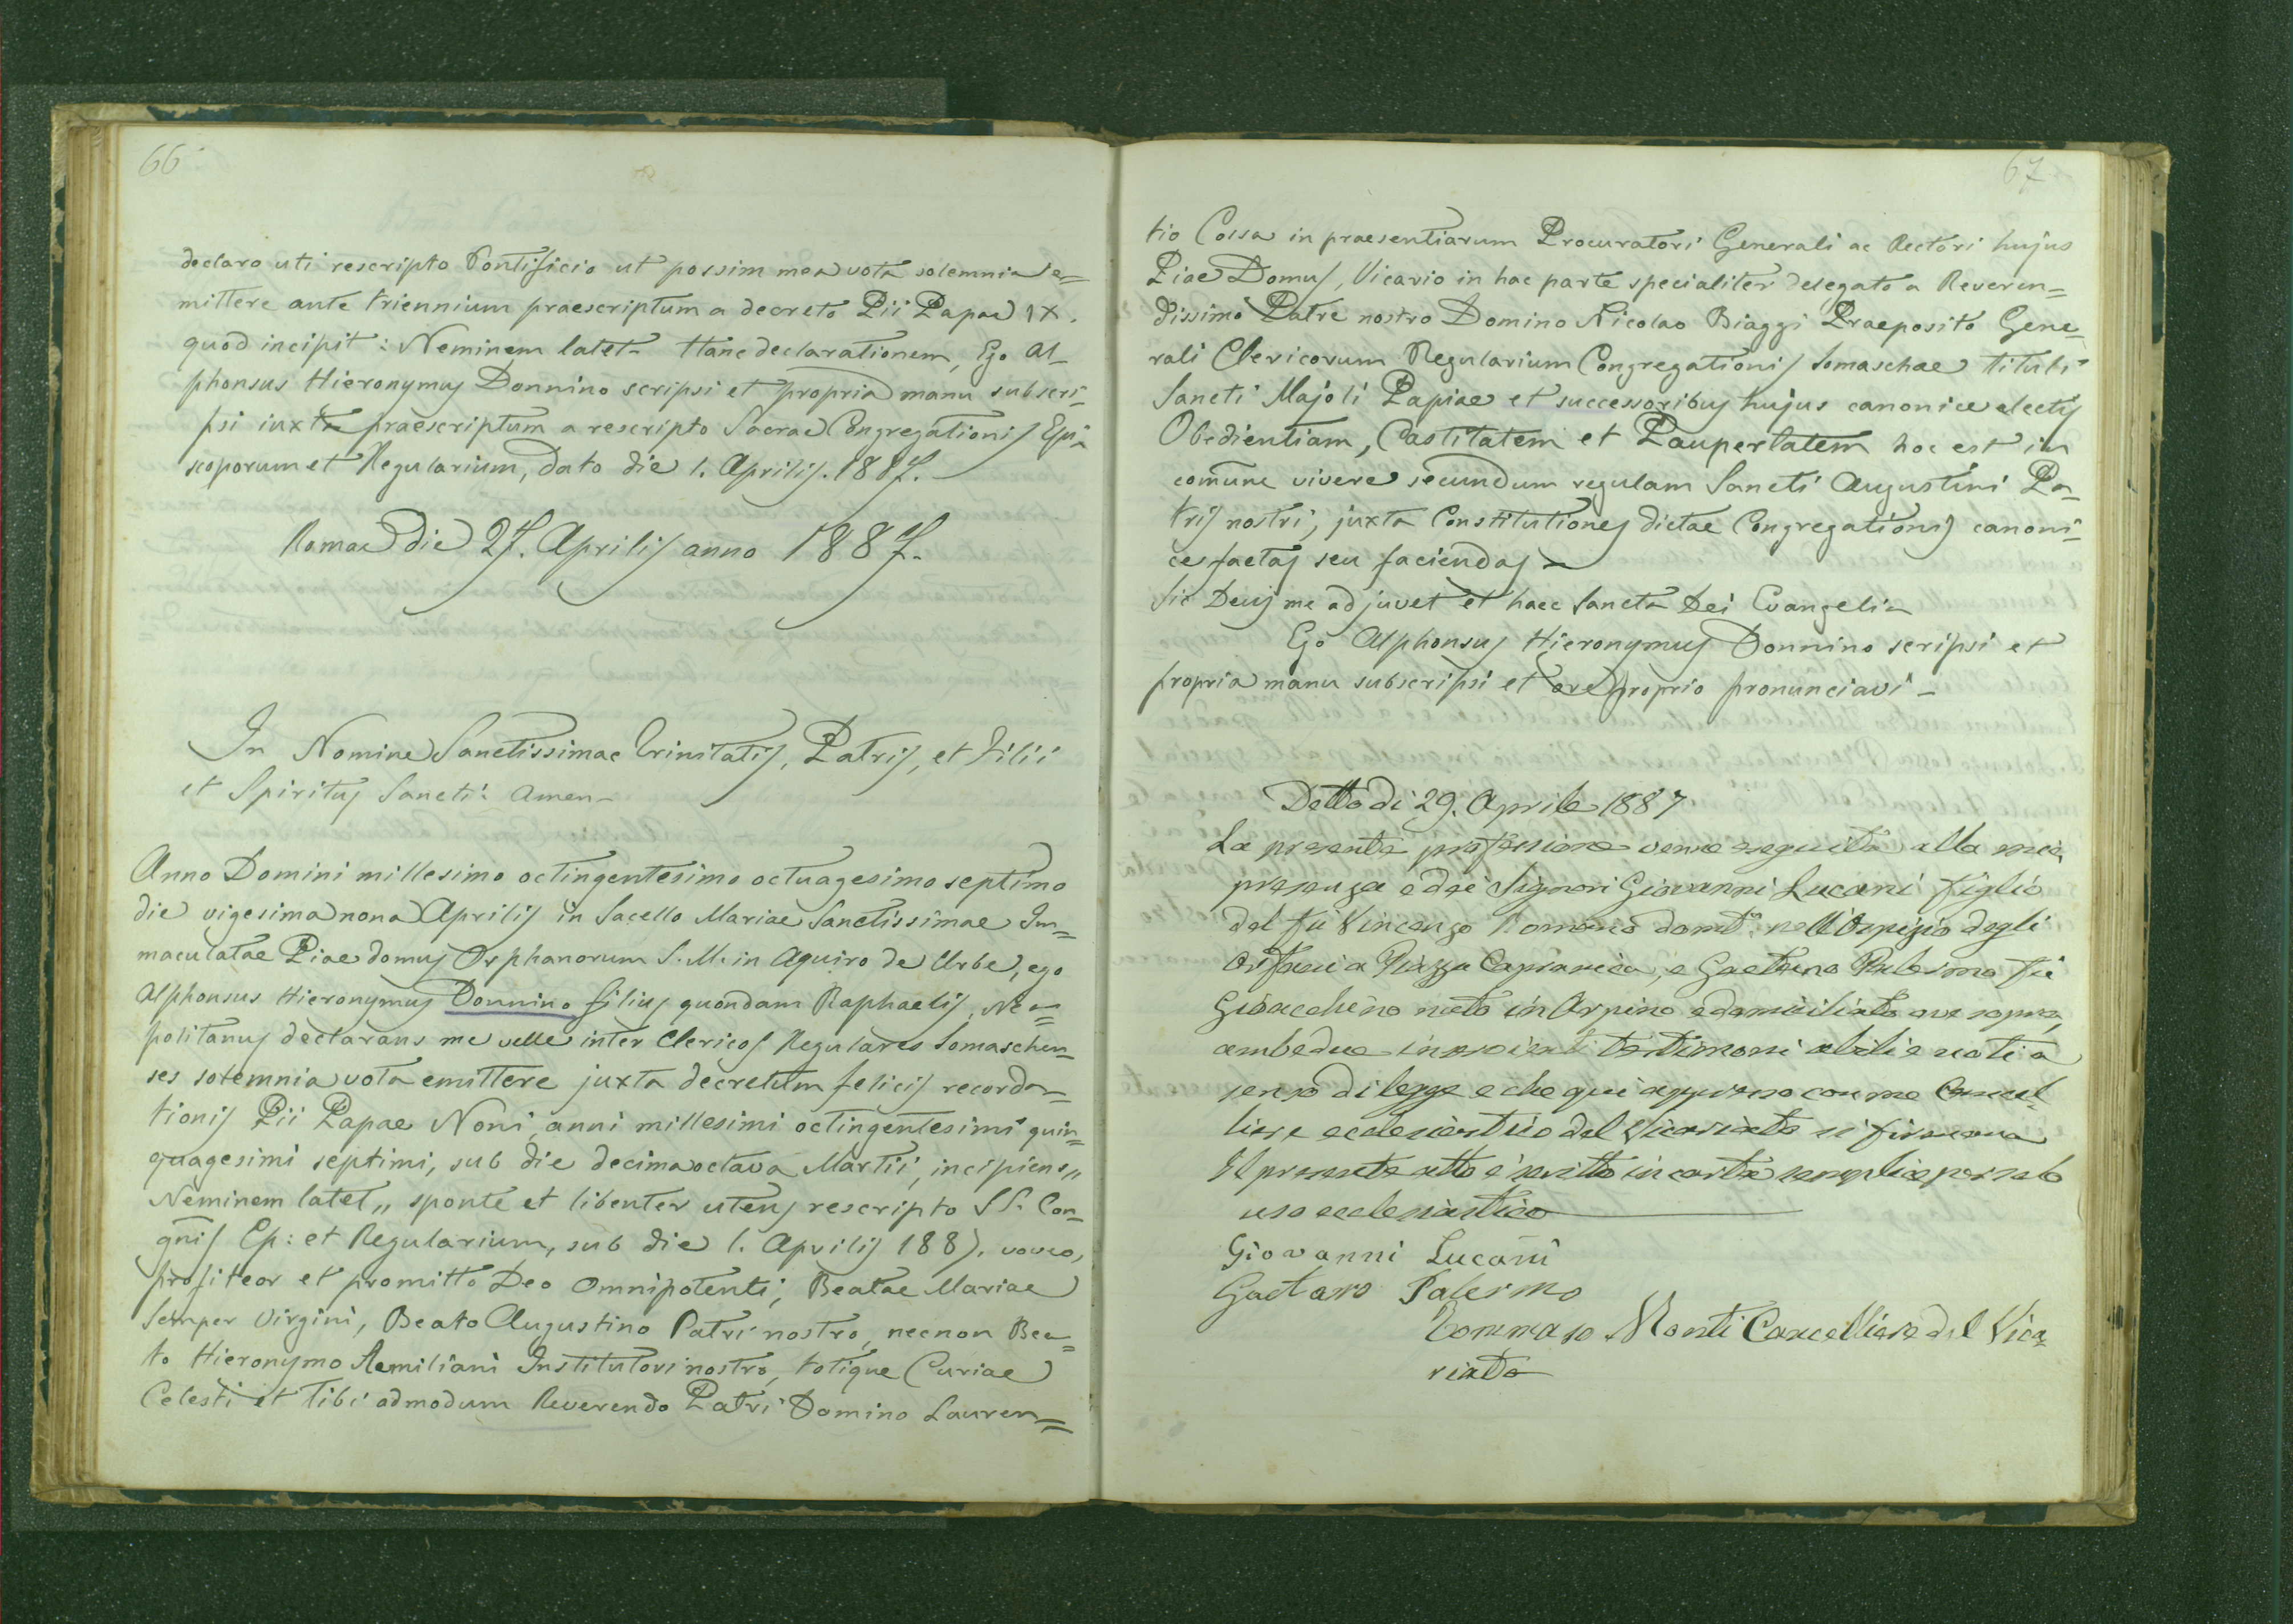 66
declaro uti rescripto Pontificio ut possim mea vota solemnia e=
mittere ante triennium praescriptum a decreto Pii Papae IX.
quod incipit: Neminem latet - Hanc declarationem, Ego Al=
phonsus Hieronymus Donnino scripsi et propria manu subscri=
psi iuxta praescriptum a rescripto Sacrae Congregationis Epi=
scoporum et Regularium, dato die 1. Aprilis. 1887. -
Romae die 27. Aprilis anno 1887. -
In Nomine Sanctissimae Trinitatis, Patris, et Filii
et Spiritus Sancti: Amen -
Anno Domini millesimo octingentesimo octuagesimo septimo
die vigesima nona Aprilis in Sacello Mariae Sanctissimae Im=
maculatae Piae domus Orphanorum S. M. in Aquiro de Urbe, ego
Alphonsus Hieronymus Donnino filius quondam Raphaelis, Nea=
politanus declarans me velle inter Clericos Regulares Somaschen=
ses solemnia vota emittere juxta decretum felicis recorda=
tionis Pii Papae Noni, anni millesimi octingentesimi quin=
quagesimi septimi, sub die decimaoctava Martii, incipiens „
Neminem latet „ sponte et libenter utens rescripto SS. Con=
gnis Ep: et Regularium, sub die 1. Aprilis 1887. voveo,
profiteor et promitto Deo Omnipotenti, Beatae Mariae
Semper Virgini, Beato Augustino Patri nostro, necnon Bea=
to Hieronymo Aemiliani Institutori nostro, totique Curiae
Celesti et Tibi admodum Reverendo Patri Domino Lauren=
67
tio Cossa in praesentiarum Procuratori Generali ac Rectori hujus
Piae Domus, Vicario in hac parte specialiter delegato a Reveren=
dissimo Patre nostro Domino Nicolao Biaggi Praeposito Gene=
rali Clericorum Regularium Congregationis Somaschae tituli
Sancti Majoli Papiae et successoribus hujus canonice electis
Obedientiam, Castitatem et Paupertatem hoc est in
comune vivere secundum regulam Sancti Augustini Pa=
tris nostri, juxta Constitutiones dictae Congregationis canoni=
ce factas seu faciendas -
Sic Deus me adjuvet et haec Sancta Dei Evangelia
Ego Alphonsus Hieronymus Donnino scripsi et
propria manu subscripsi et ore proprio pronunciavi -
Detto di 29. Aprile 1887
La presente professione venne eseguita alla mia
presenza e dei Signori Giovanni Lucani figlio
del fu Vincenzo Romano domto. nell'Ospizio degli
Orfani a Piazza Capranica, e Gaetano Palermo fu
Gioacchino nato in Arpino e domiciliato ove sopra,
ambedue testimoni abili e noti a
senso di legge e che qui appresso con me Cancel=
liere ecclesiastico del Vicariato si firmano
Il presente atto è scritto in carta semplice per solo
uso ecclesiastico
Giovanni Lucani
Gaetano Palermo
Tommaso Monti Cancelliere del Vica=
riato